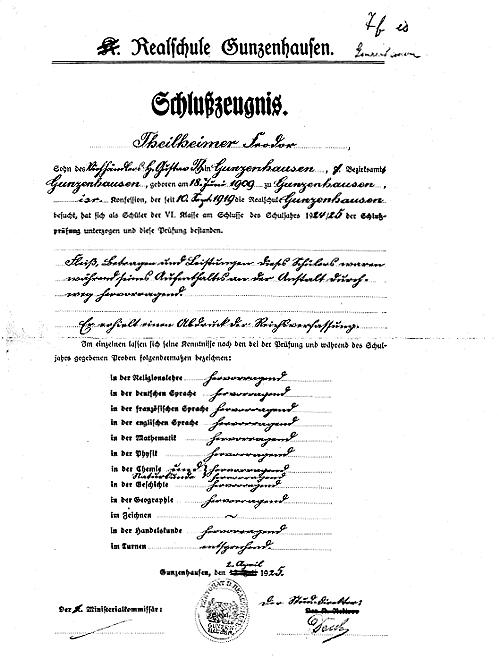 K. Realschule Gunzenhausen.
Schlußzeugnis.
Theilheimer Feodor,
Sohn des Viehhändlers H. Gustav Th. in Gunzenhausen, K. Bezirksamts
Gunzenhausen, geboren am 18. Juni 1909 zu Gunzenhausen,
isr. Konfession, der seit 10. Sept. 1919 die Realschule Gunzenhausen
besucht, hat sich als Schüler der VI. Klasse am Schlusse des Schuljahrs 1924/25 der Schluß-
prüfung unterzogen und diese Prüfung bestanden.
Fleiß, Betragen und Leistungen dieses Schülers waren
während seines Aufenthalts an der Anstalt durch-
weg hervorragend.
Er erhielt einen Abdruck der Reichsverfassung.
Im einzelnen lassen sich seine Kenntnisse nach den bei der Prüfung und während des Schul-
jahres gegebenen Proben folgendermaßen bezeichnen:
in der Religionslehre hervorragend
in der deutschen Sprache hervorragend
in der französischen Sprache hervorragend
in der englischen Sprache hervorragend
in der Mathematik hervorragend
in der Physik hervorragend
in der Chemie und hervorragend
Naturkunde hervorragend
in der Geschichte hervorragend
in der Geographie hervorragend
im Zeichnen ~
in der Handelskunde hervorragend
im Turnen entsprechend.
2. April
Gunzenhausen, den 1925.
Der K. Ministerialkommissär:
der Stud. Direktor: